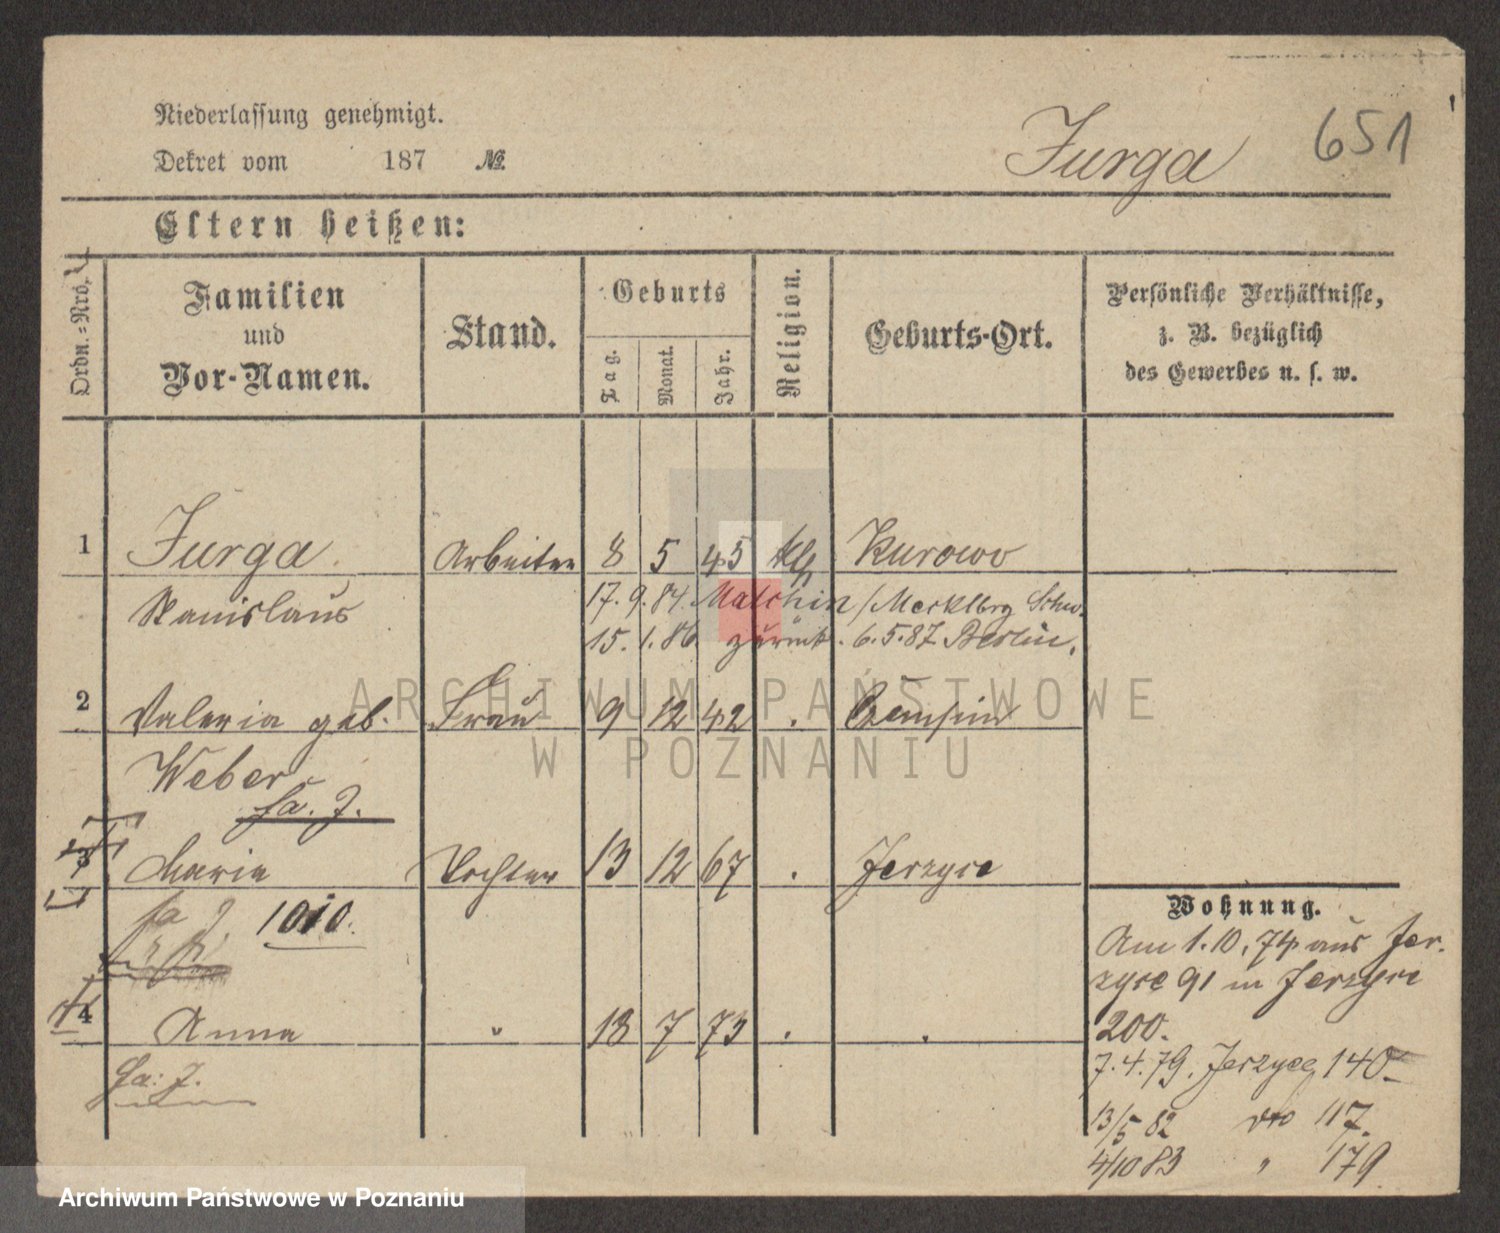 Niederlassung genehmigt.
Dekret vom 187 №
Jurga 651
Eltern heißen:
Ordn.-Nro.
Familien und Vor-Namen.
Stand.
Geburts
Tag. Monat. Jahr.
Religion.
Geburts-Ort.
Persönliche Verhältnisse,
z. B. bezüglich
des Gewerbes u. s. w.
1 Jurga Arbeiter 8 5 45 kth Kurowo
Stanislaus 17. 9. 84. Malchin / Mecklbrg Schw.
15. 1. 86 zurück. 6. 5. 87 Berlin.
2 Valeria geb. Frau 9 12 42 .
Weber
fa. J.
3 Marie Tochter 13 12 67 . Jerzyce
fa J. 1010.
4 Anna " 18 7 73 . .
fa: J.
Wohnung.
Am 1. 10. 74 aus Jer-
zyce 91 in Jerzyce
200.
7. 4. 79. Jerzyce 140
13/5 82 dto 117.
4/10 83 " 179.
ARCHIWUM PAŃSTWOWE
W POZNANIU
Archiwum Państwowe w Poznaniu